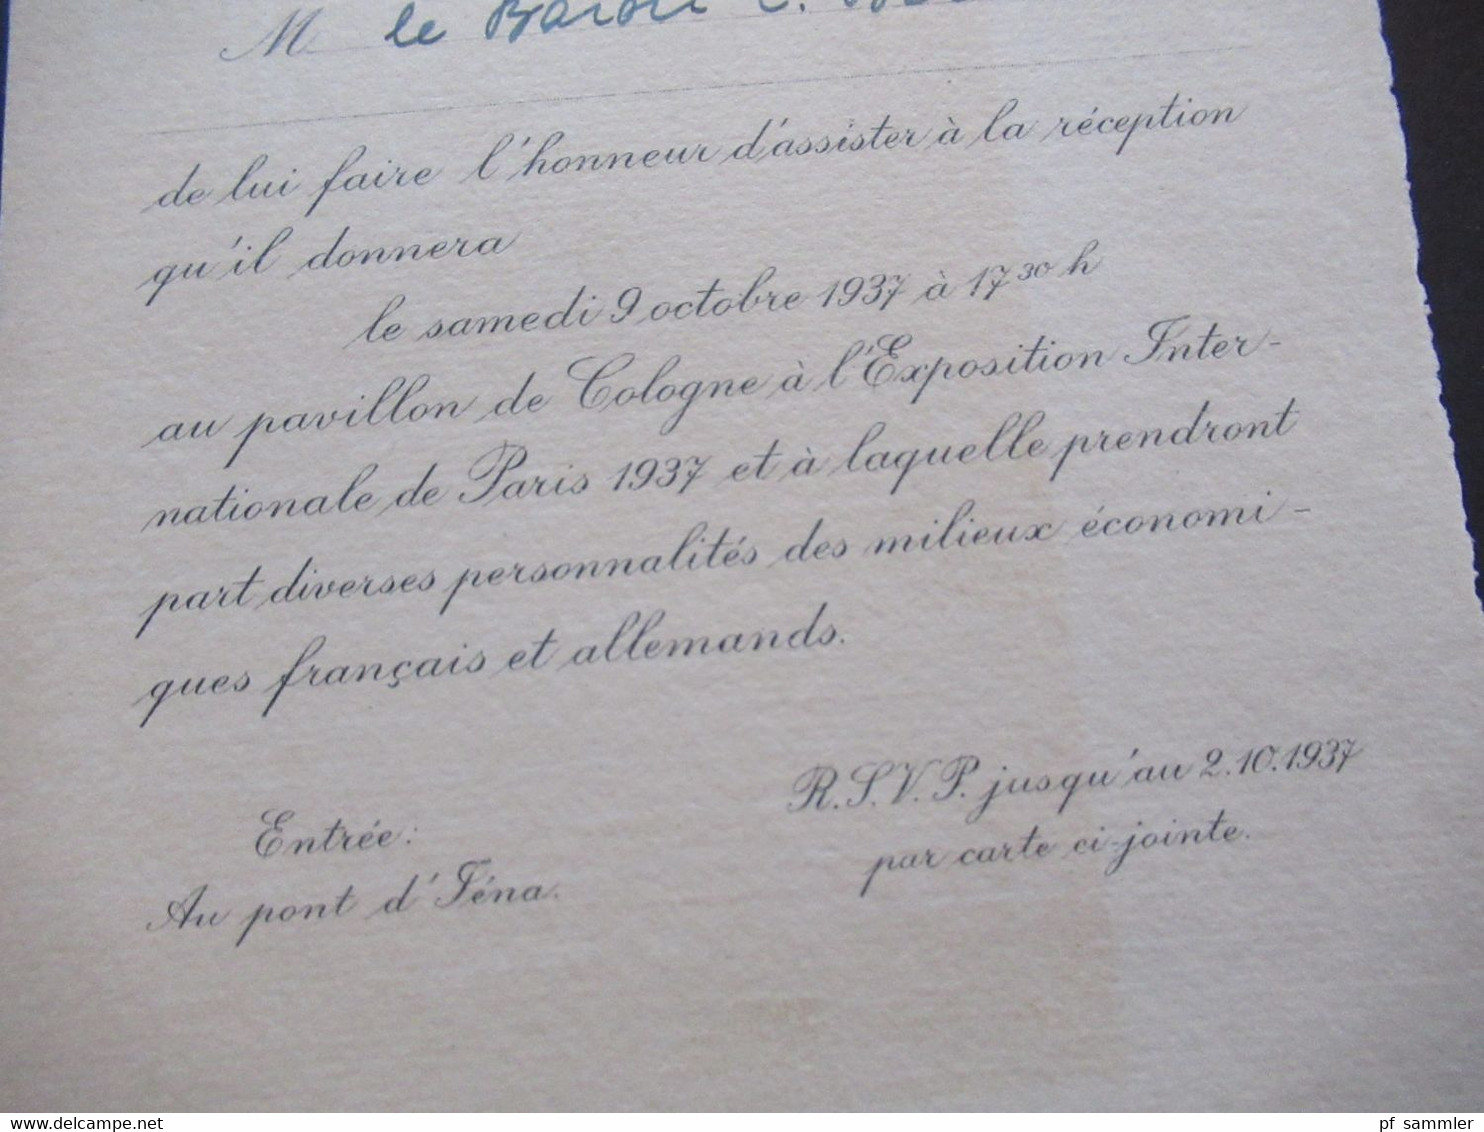 M le Baron
de lui faire l'honneur d'assister à la réception
qu'il donnera
le samedi 9 octobre 1937 à 17 30 h
au pavillon de Cologne à l'Exposition Inter-
nationale de Paris 1937 et à laquelle prendront
part diverses personnalités des milieux économi-
ques français et allemands.
R.S.V.P. jusqu'au 2.10.1937
par carte ci-jointe.
Entrée:
Au pont d'Iéna.
www.delcampe.net
pf_sammler